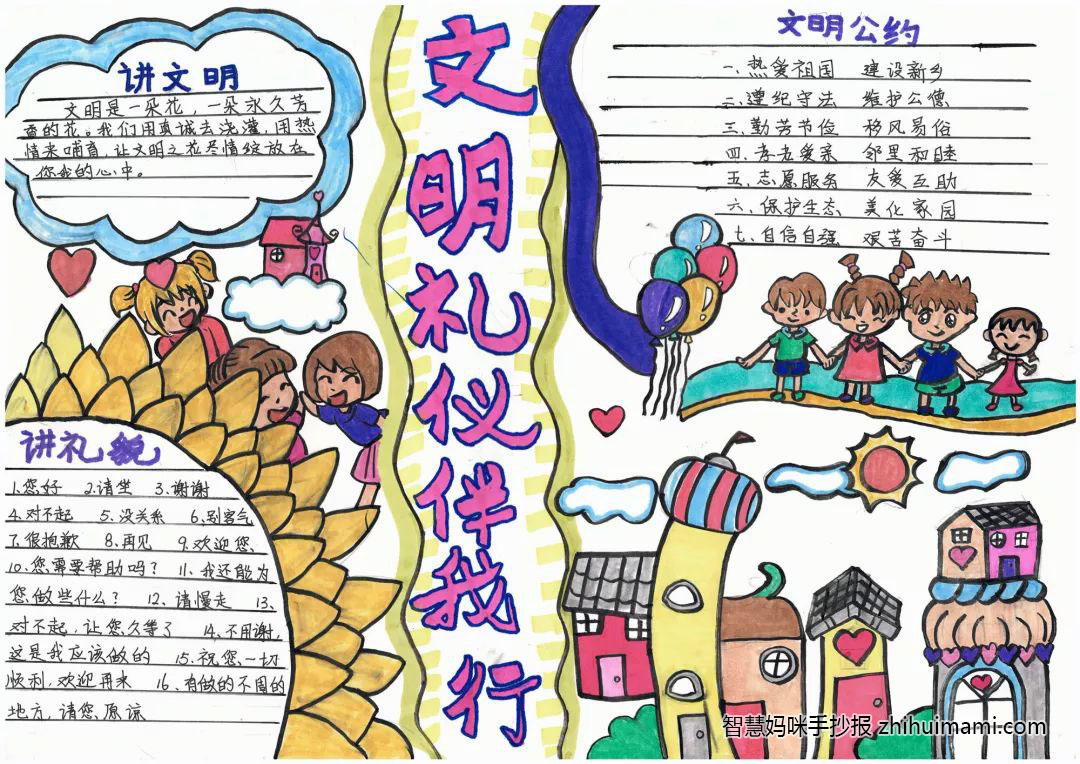 讲文明
文明是一朵花，一朵永久芳
香的花。我们用真诚去浇灌，用热
情来哺育，让文明之花尽情绽放在
你我的心中。
讲礼貌
1.您好 2.请坐 3.谢谢
4.对不起 5.没关系 6.别客气
7.很抱歉 8.再见 9.欢迎您、
10.您需要帮助吗？ 11、我还能为
您做些什么？ 12、请慢走 13、
对不起，让您久等了 14、不用谢，
这是我应该做的 15.祝您一切
顺利，欢迎再来 16、有做的不周的
地方，请您原谅
文明礼仪伴我行
文明公约
一、热爱祖国 建设新乡
二、遵纪守法 维护公德
三、勤劳节俭 移风易俗
四、孝老爱亲 邻里和睦
五、志愿服务 友爱互助
六、保护生态 美化家园
七、自信自强 艰苦奋斗
智慧妈咪手抄报 zhihuimami.com